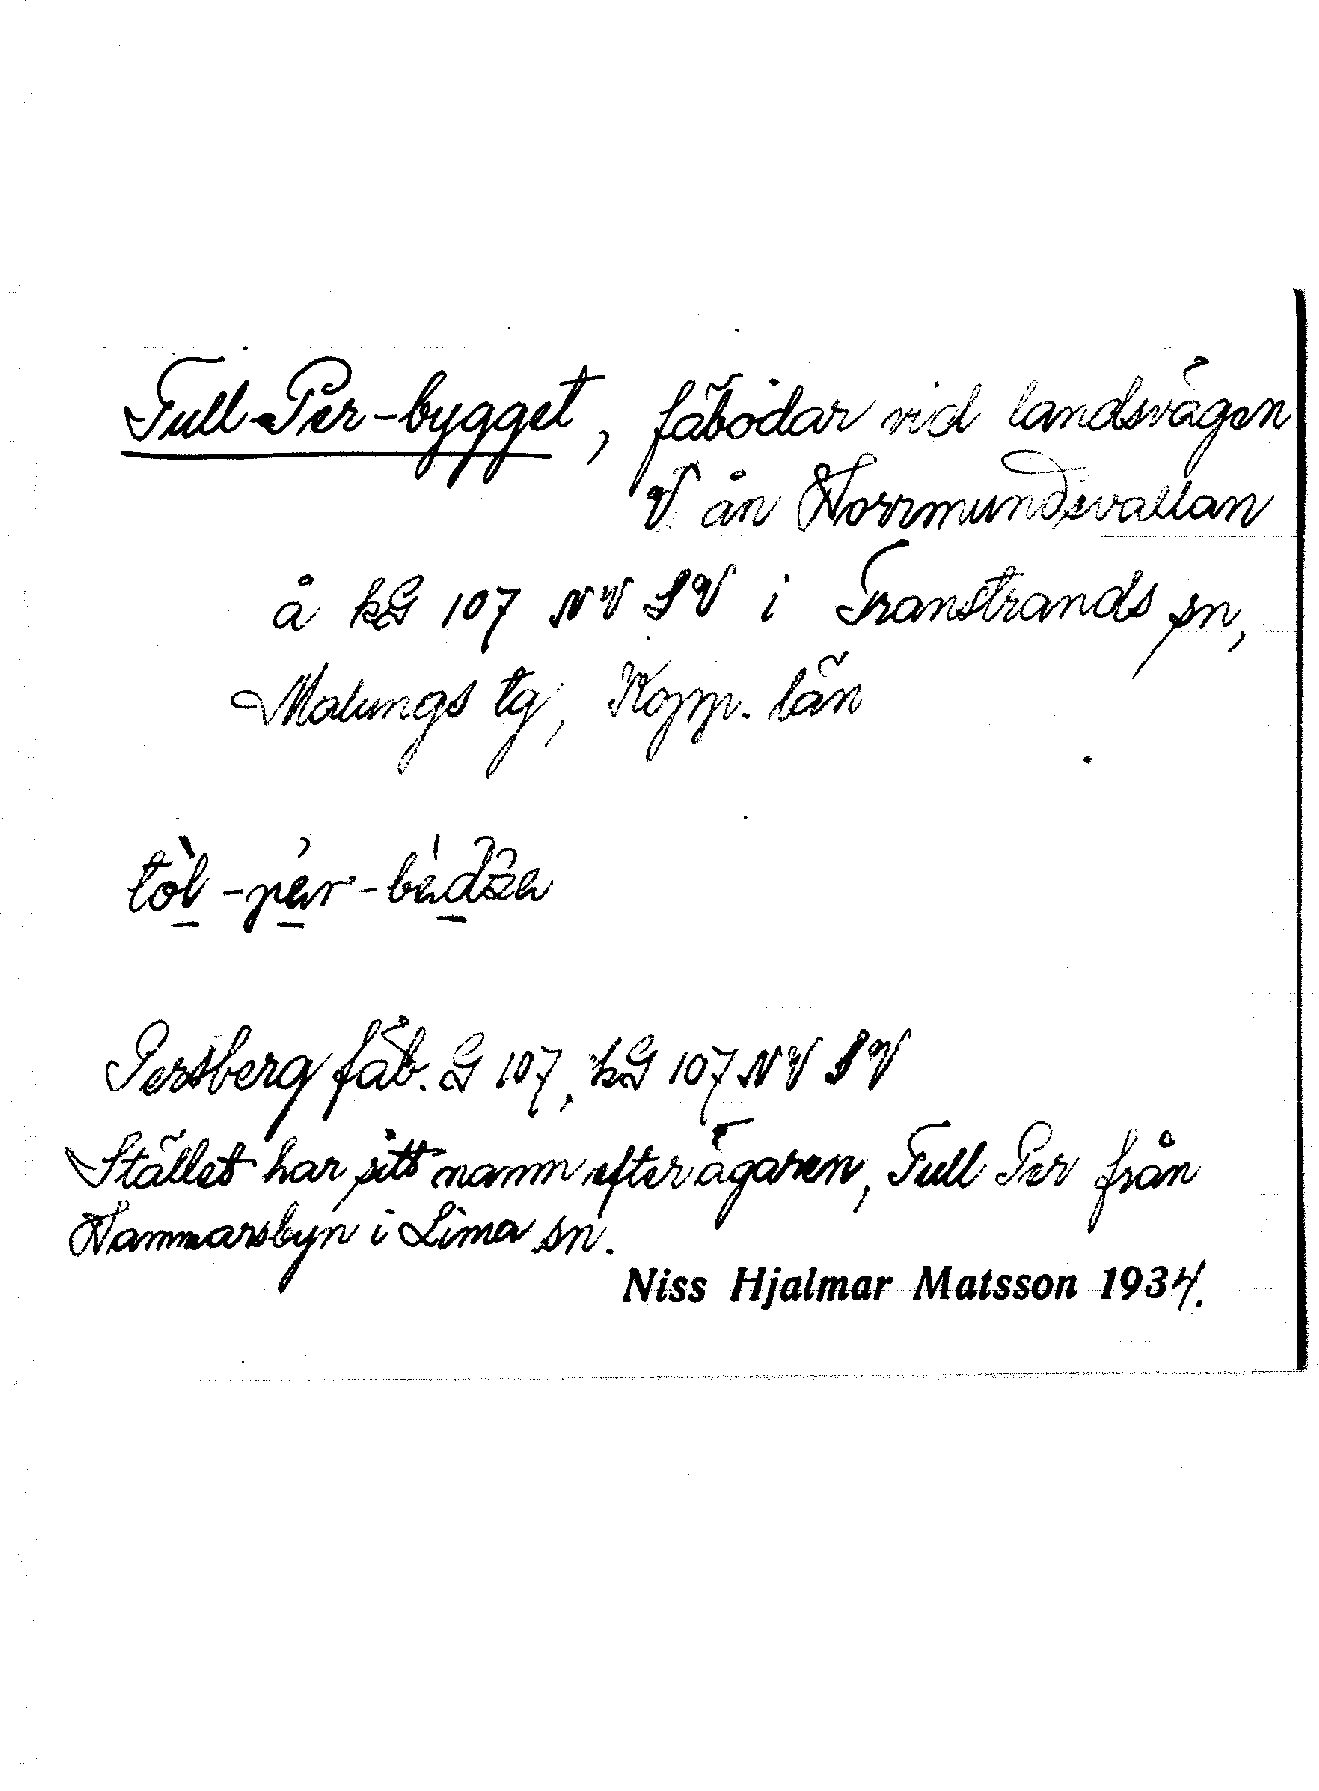 Tull-Per-bygget, fäbodar vid landsvägen
V. ån Horrmundsvallan
å kG 107 NV SV i Transtrands sn,
Malungs tg, Kopp. län
tòl-pér-bèdžə
Persberg fäb. G 107, kG 107 NV SV
Stället har sitt namn efter ägaren, Tull Per från
Hammarsbyn i Lima sn.
Niss Hjalmar Matsson 1934.